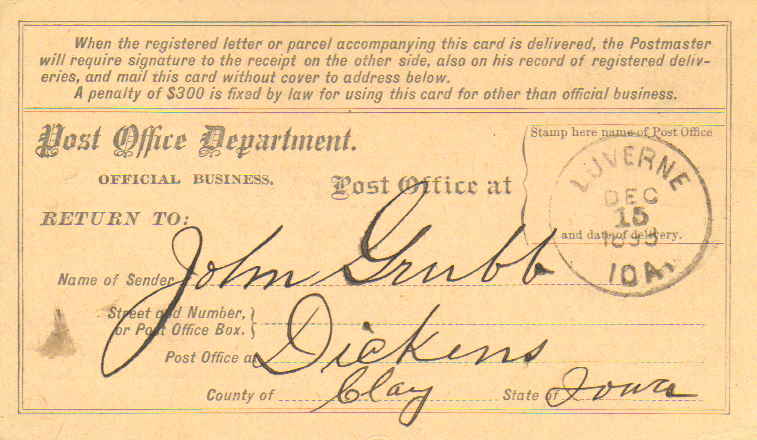 When the registered letter or parcel accompanying this card is delivered, the Postmaster
will require signature to the receipt on the other side, also on his record of registered deliv-
eries, and mail this card without cover to address below.
A penalty of $300 is fixed by law for using this card for other than official business.
Post Office Department.
OFFICIAL BUSINESS.
Post Office at
Stamp here name of Post Office
and date of delivery.
LUVERNE
DEC
15
IOA.
RETURN TO:
Name of Sender John Grubb
Street and Number,
or Post Office Box.
Post Office at Dickens
County of Clay State of Iowa